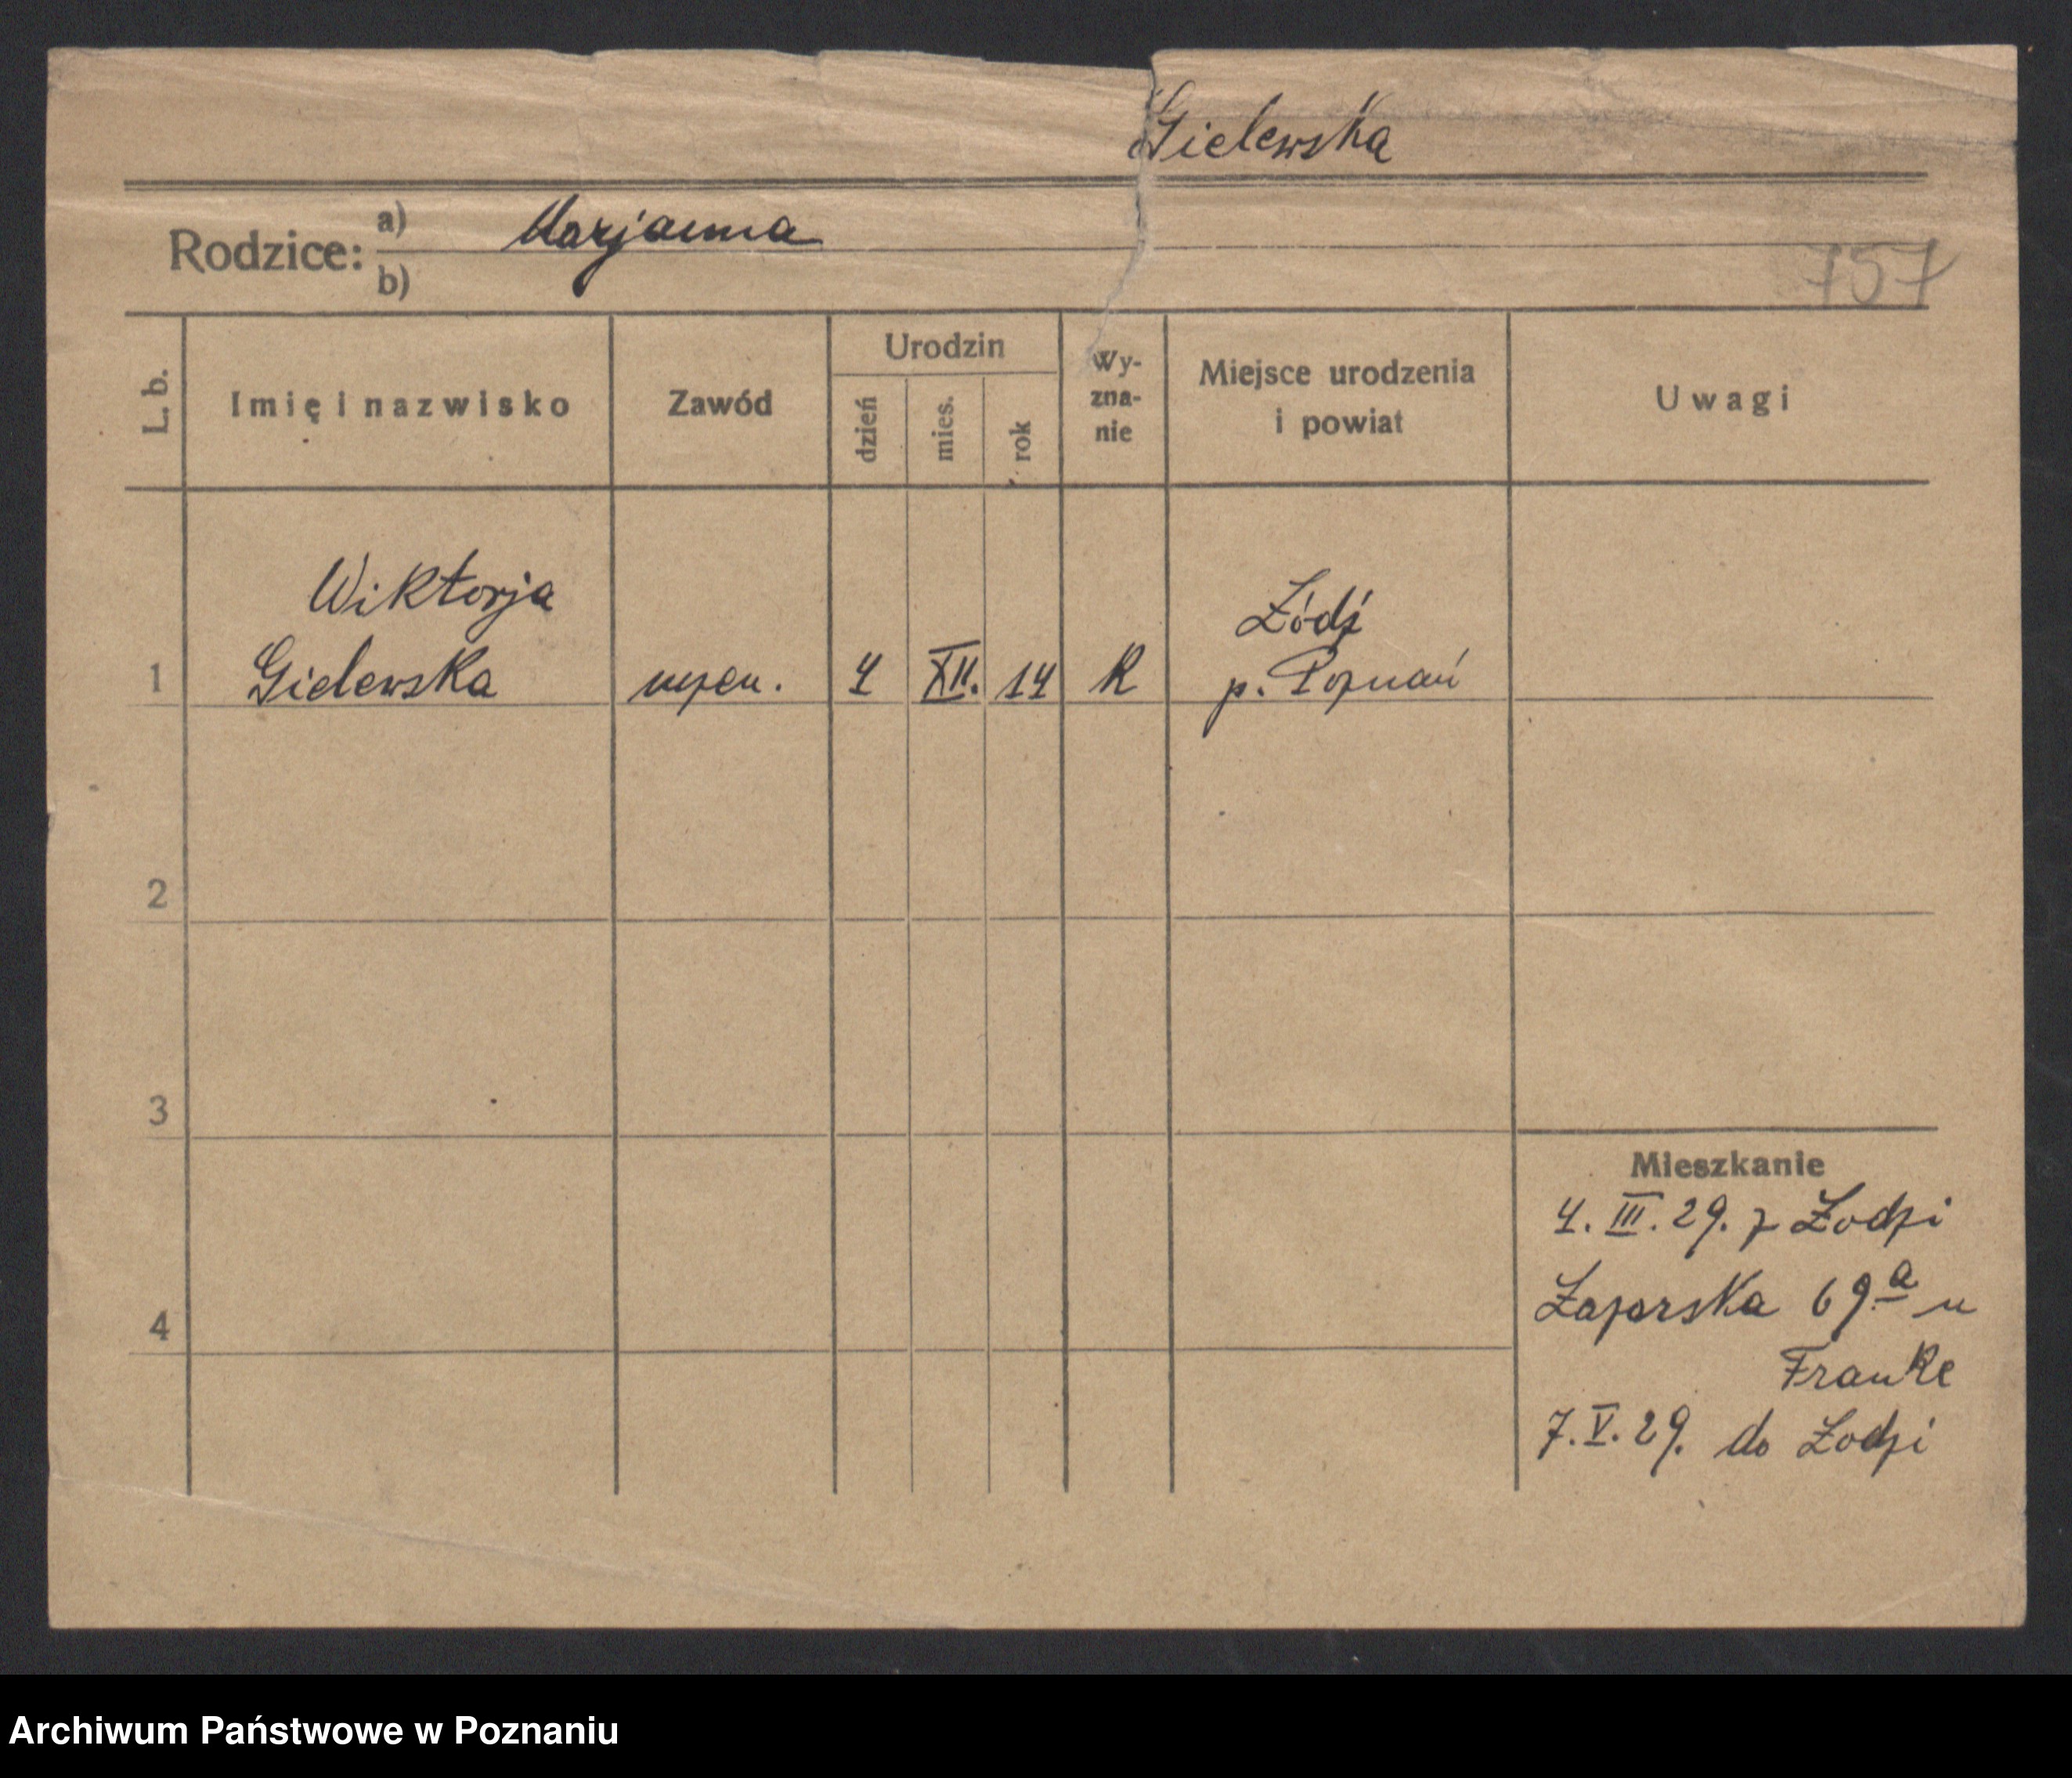 Gielewska
Rodzice: a) Marjanna
b)
757
L. b. Imię i nazwisko Zawód Urodzin dzień mies. rok Wyznanie Miejsce urodzenia i powiat Uwagi
Wiktorja Łódź
1 Gielewska uczen. 4 XII. 14 R p. Poznań
2
3
Mieszkanie
4. III. 29. z Łodzi
4 Łazarska 69a u
Franke
7. V. 29. do Łodzi
Archiwum Państwowe w Poznaniu